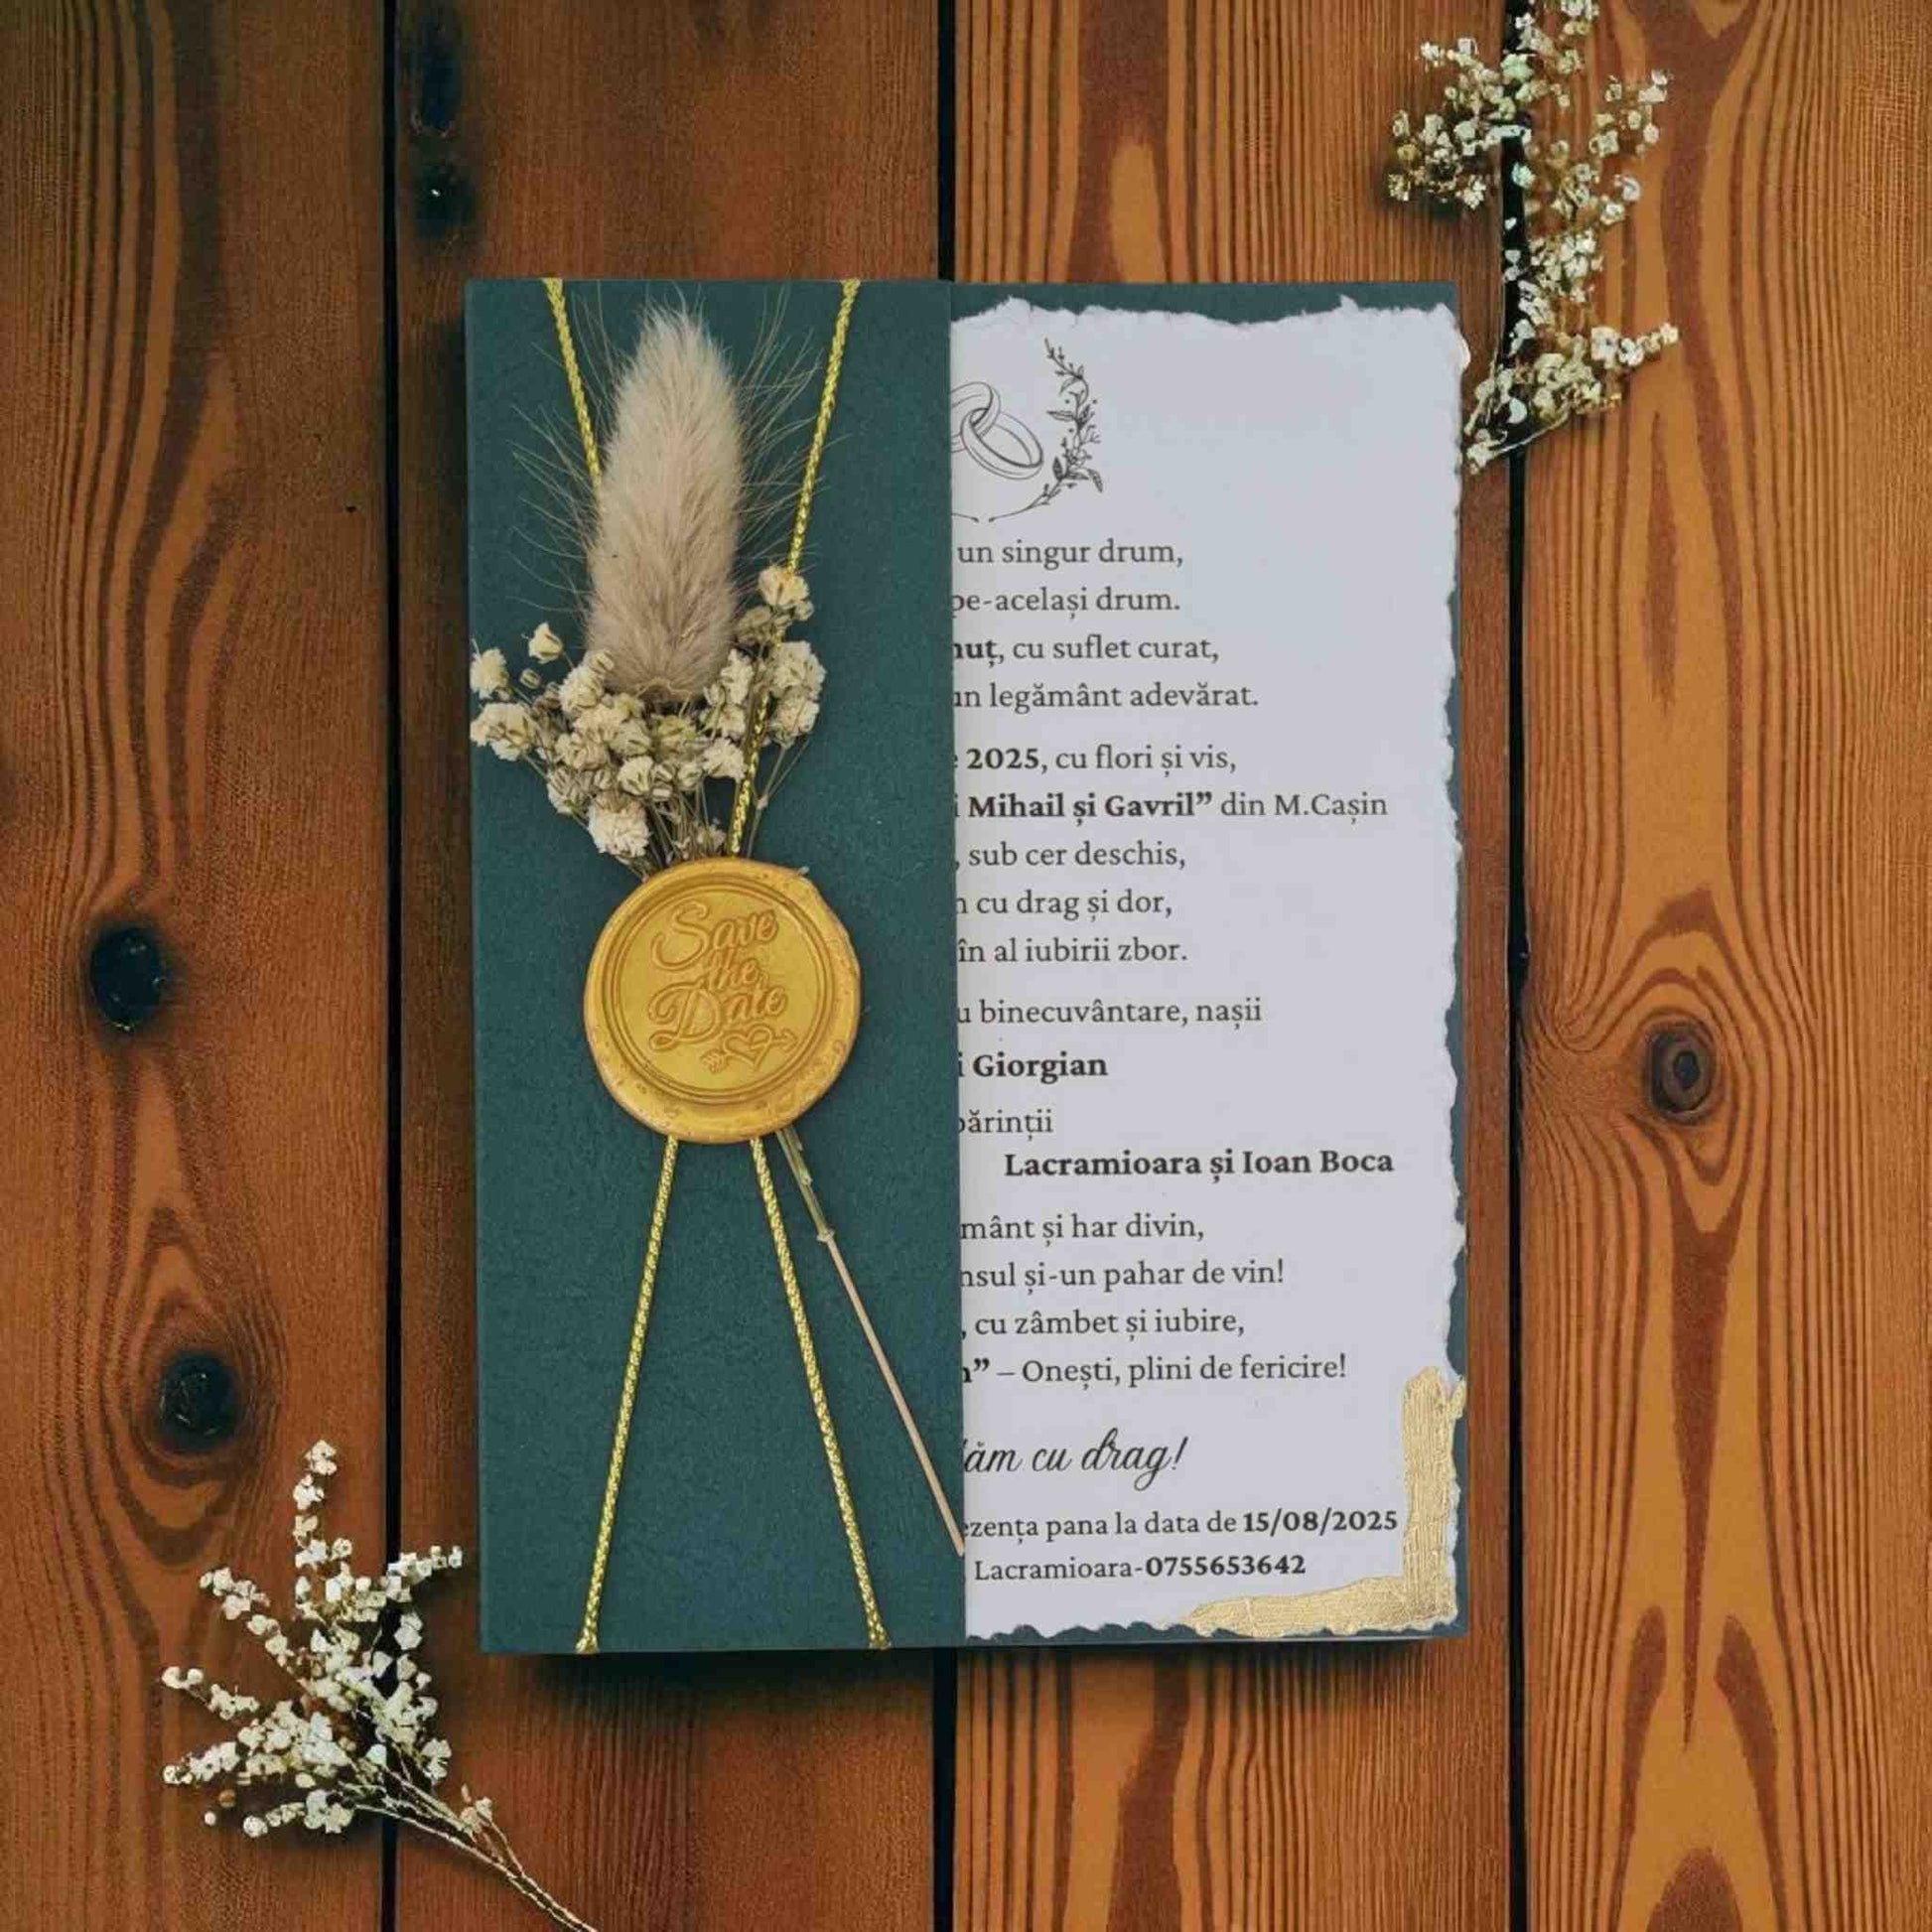 Save
the
Date
un singur drum,
pe-același drum.
nuț, cu suflet curat,
un legământ adevărat.
2025, cu flori și vis,
i Mihail și Gavril” din M.Cașin
, sub cer deschis,
cu drag și dor,
în al iubirii zbor.
u binecuvântare, nașii
i Giorgian
părinții
Lacramioara și Ioan Boca
mânt și har divin,
nsul și-un pahar de vin!
, cu zâmbet și iubire,
” – Onești, plini de fericire!
ăm cu drag!
ezența pana la data de 15/08/2025
Lacramioara-0755653642